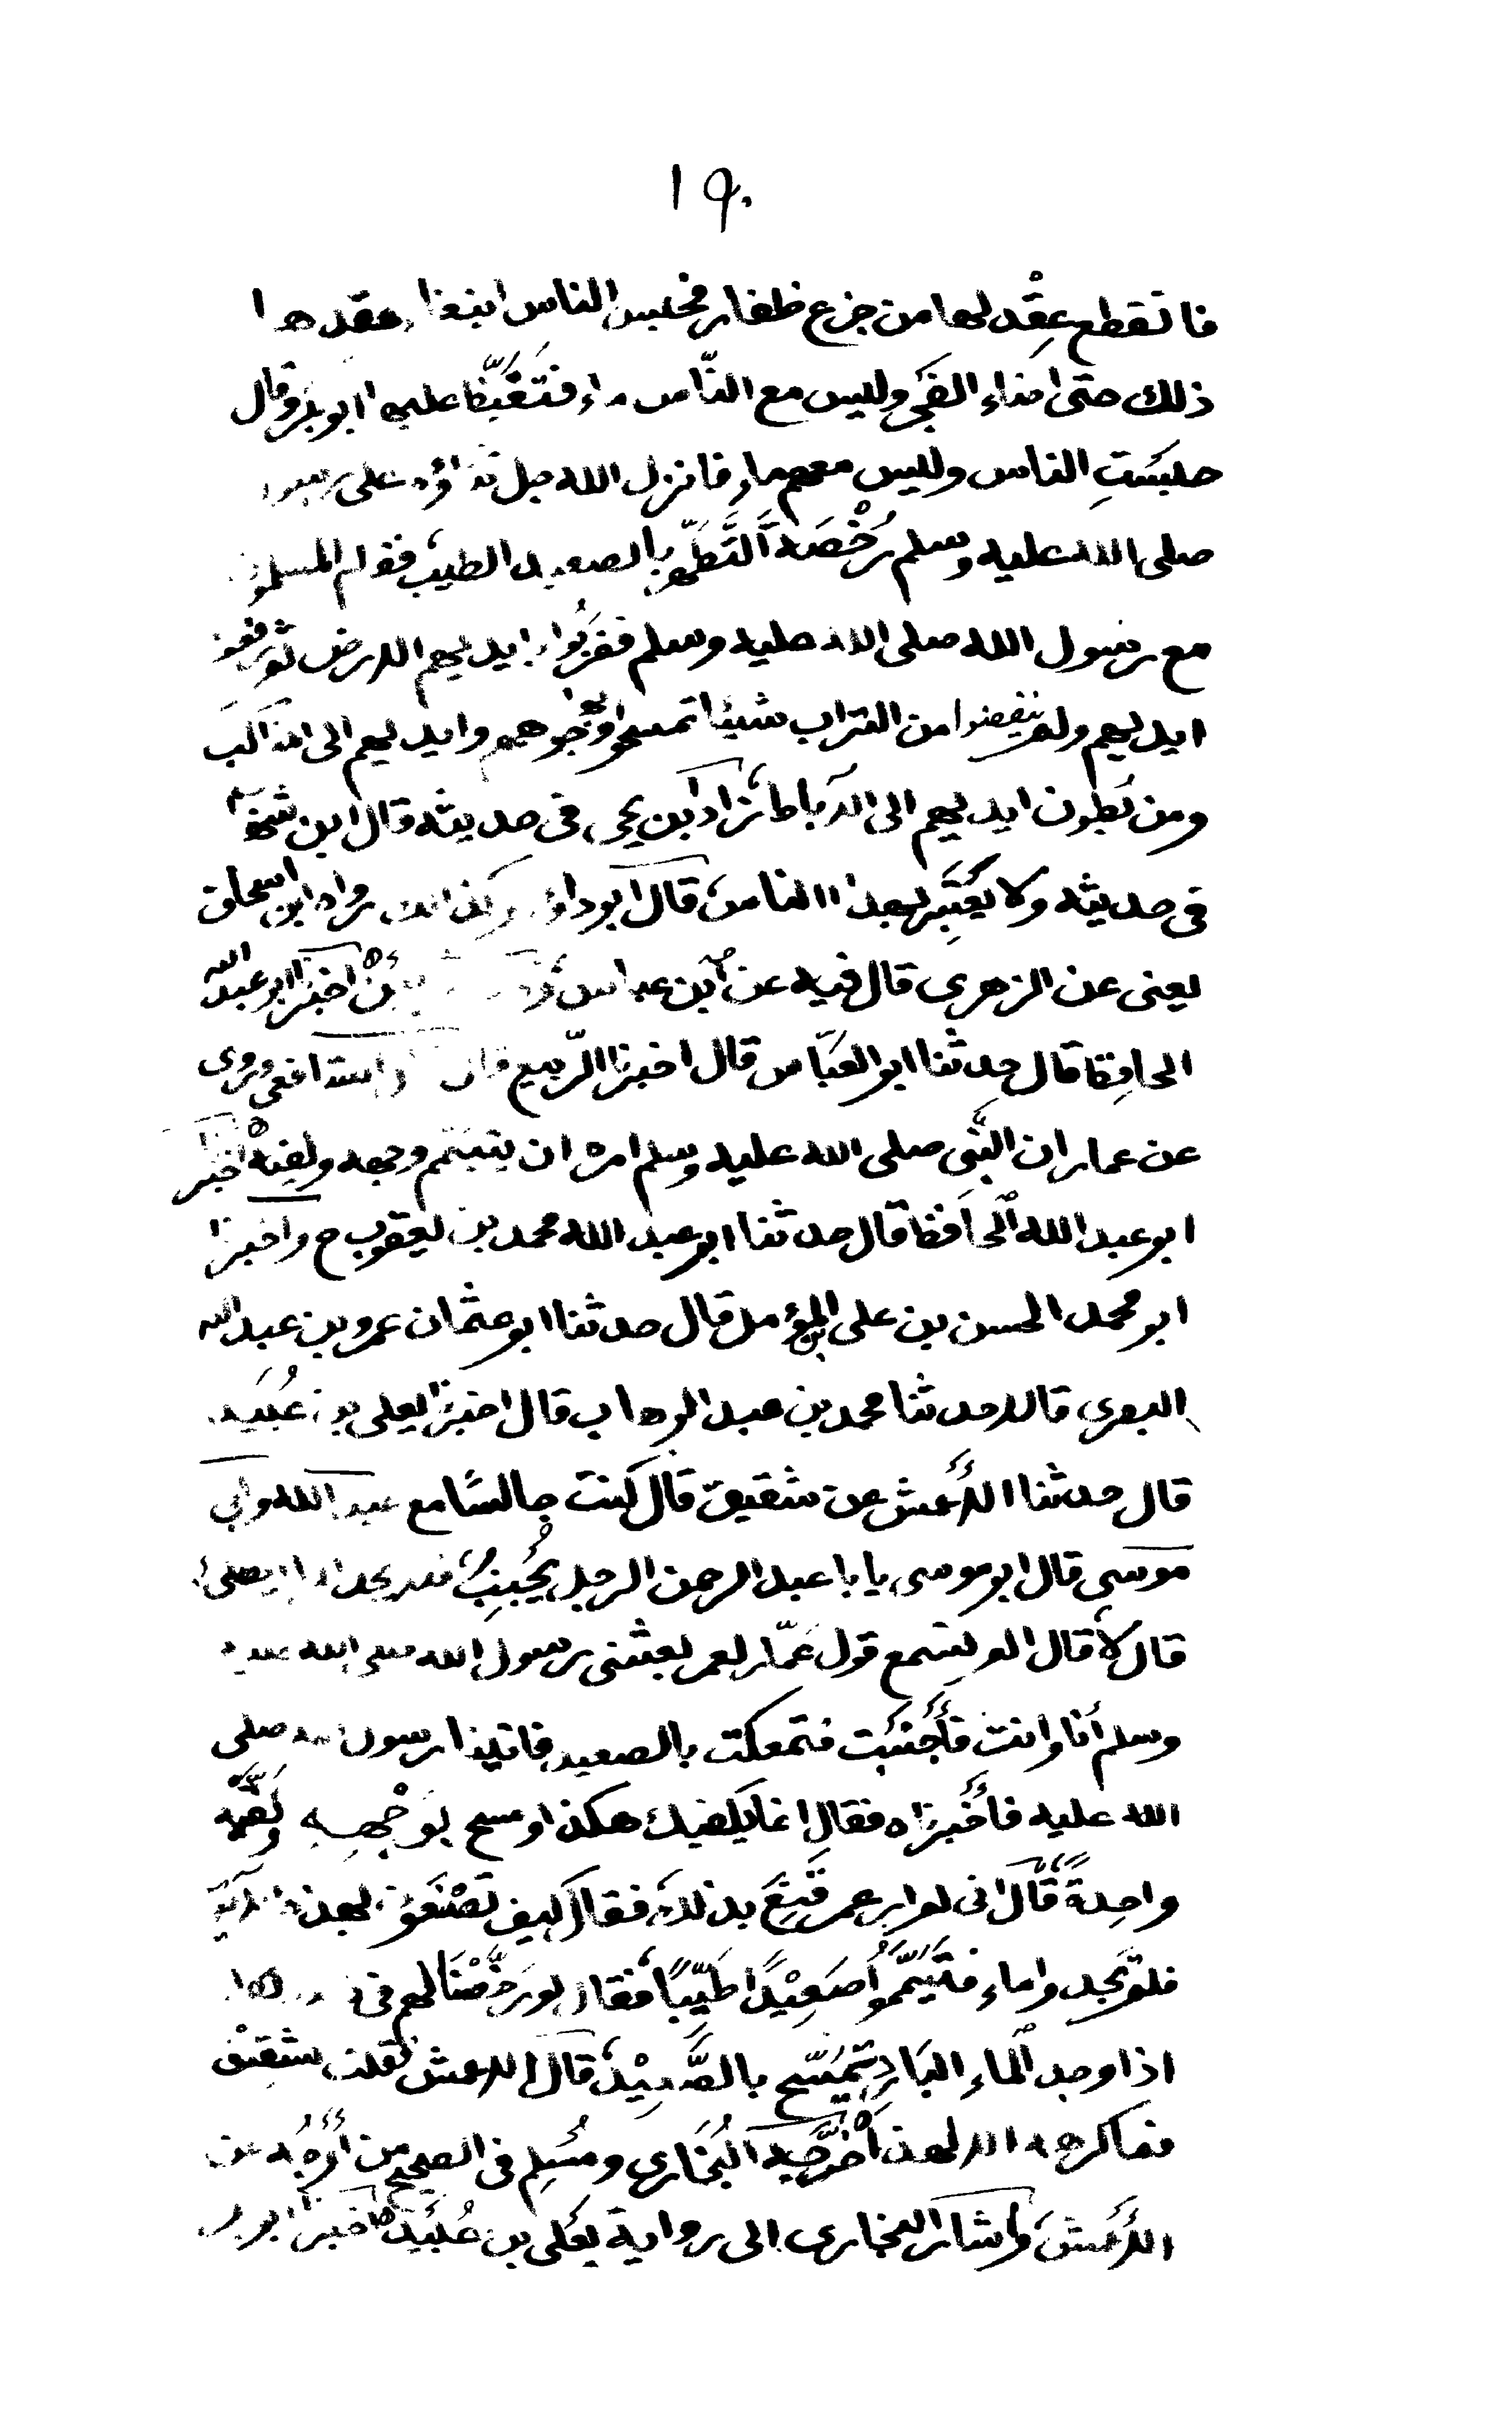 ١٩٠
فانقطع عِقْد لها من جزع ظفار فحبس الناس ابتغا عقدها
ذلك حتى اضاء الفجر وليس مع النّاس ماء فتغيّظ عليها ابو بكر وقال
حبستِ الناس وليس معهم ماء فانزل الله جل ثناؤه على رسوله
صلى الله عليه وسلم رُخْصَة التَّطَهّر بالصعيد الطيب فقام المسلمون
مع رسول الله صلى الله عليه وسلم فضربُوا بايديهم الارض ثم رفعوا
ايديهم ولم ينفضوا من التراب شيئا تمسحوا وجوههم وايديهم الى المناكب
ومن بُطون ايديهم الى الآباط زاد ابن يحيى فى حديثه قال ابن شهاب
فى حديثه ولا يَعْتَبِر بهذا الناس قال ابو داود وكذلك رواه ابن اسحاق
يعنى عن الزهرى قال فيه عن ابن عباس اخبرنا ابو عبد الله
الحافظ قال حدثنا ابو العبّاس قال اخبرنا الرّبيع قال الشافعى وروى
عن عمار ان النّبى صلى الله عليه وسلم امره ان ييمّم وجهه وكفيْه اخبرنا
ابو عبد الله الحافظ قال حدثنا ابو عبد الله محمد بن يعقوب ح واخبرنا
ابو محمد الحسن بن على المؤمل قال حدثنا ابو عثمان عمرو بن عبد الله
البصرى قالا حدثنا محمد بن عبد الوهاب قال اخبرنا يعلى بن عُبَيد
قال حدثنا الأعمش عن شقيق قال كنت جالسًا مع عبد الله وابى
موسى قال ابو موسى يا با عبد الرحمن الرجل يُجْنِبُ فلا يجد الماء ايصلى
قال لا قال الم تسمع قول عمّار لعمر بعثنى رسول الله صلى الله عليه
وسلم أنا وانت فأَجْنَبت فتمعكت بالصعيد فاتينا رسول الله صلى
الله عليه فأخْبرناه فقال انما يكفيك هكذا ومسح بوَجْهِه وكَفّيه
واحِدةً قال انى لم ار عمر قَنِعَ بذلك فقال كيف تَصْنَعُوْن بهذه الآية
فلم تجدوا ماء فتَيَمّمُوا صَعِيْدًا طَيِّبًا فقال لو رَخَّصْنَا لهم فى هذا
اذا وجد الماء البَارد تَمَسّح بالصَّعِيْد قال الاعمش فقلت لشقِيْق
فما كرهه الا لهذا أخْرَجه البُخَارى ومُسْلِم فى الصحيح من أَوْجُه عن
الأَعْمَش واشار البخارى الى رواية يَعْلى بن عُبَيْد اخبرنا ابو